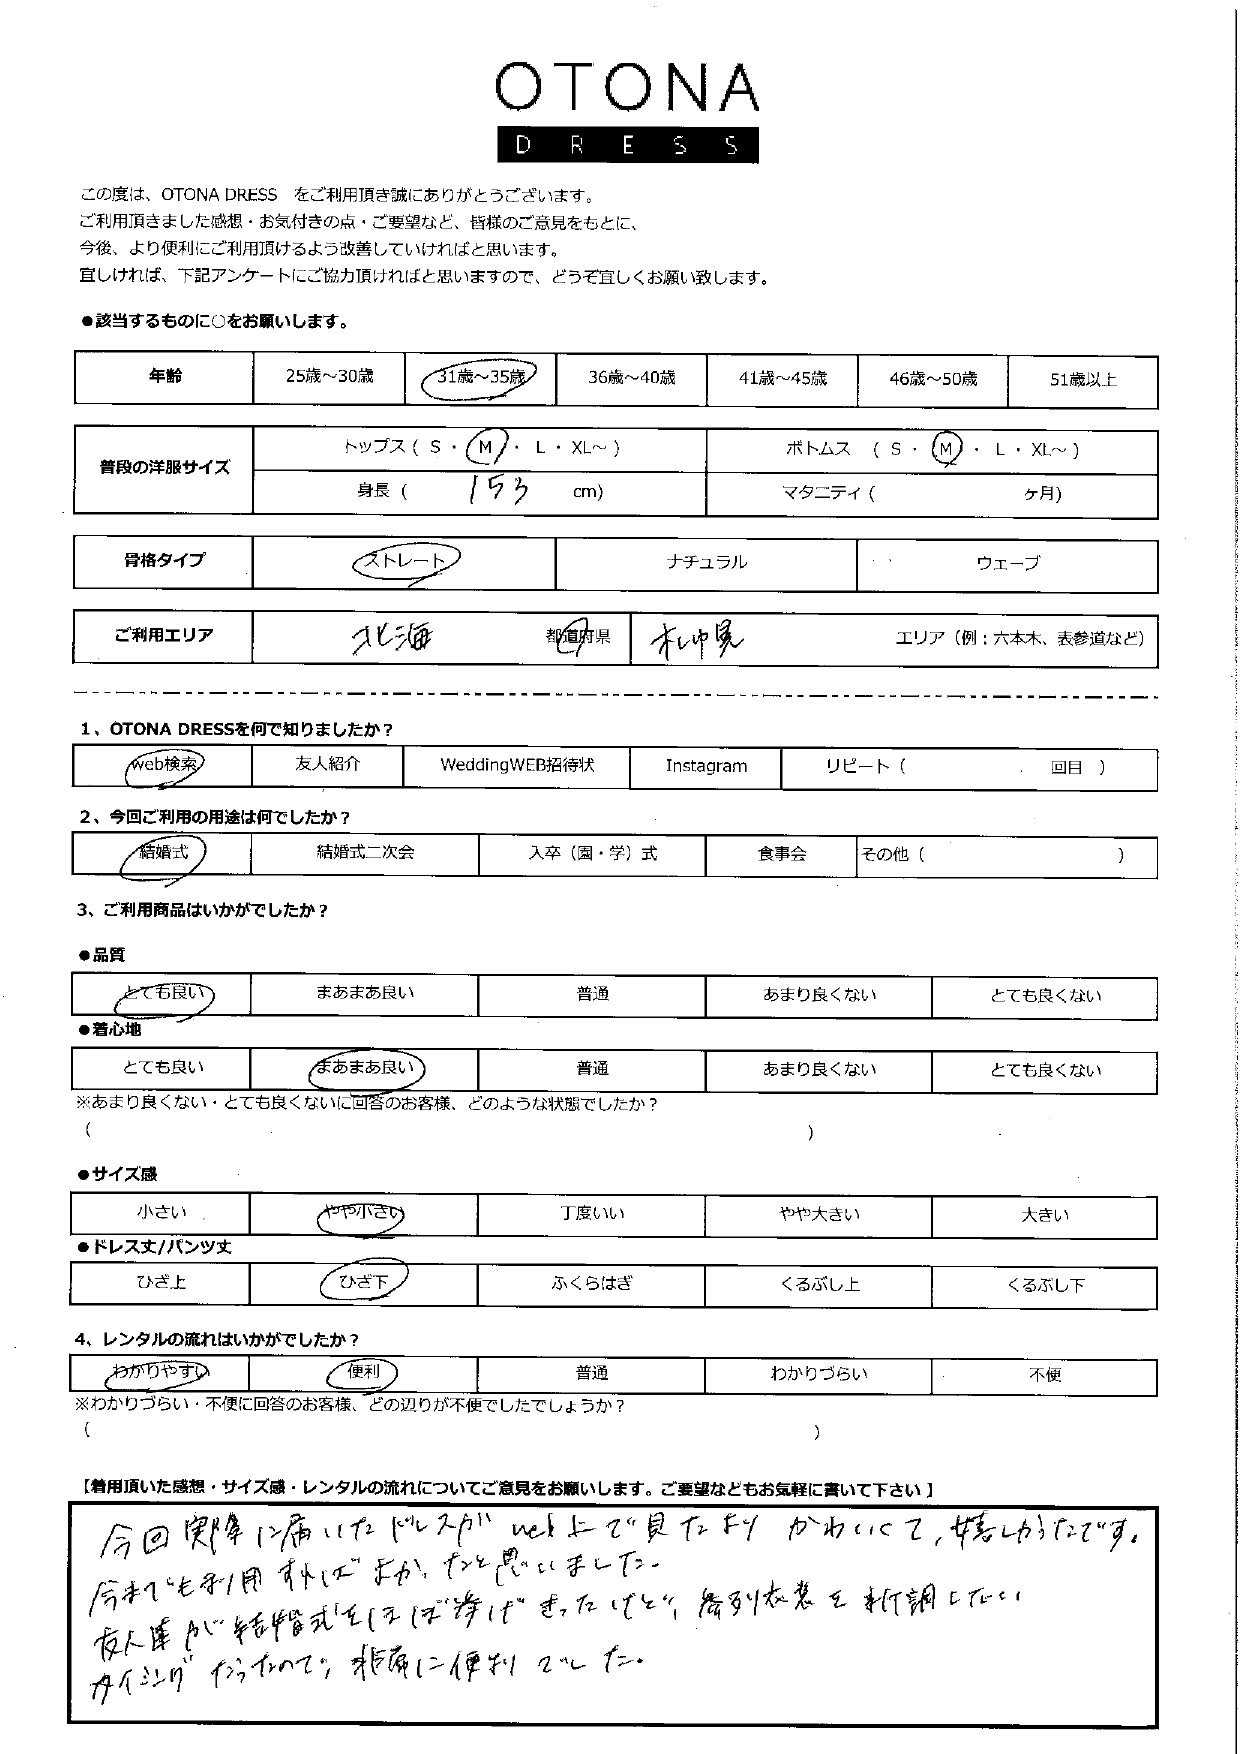 OTONA
DRESS
この度は、OTONA DRESS をご利用頂き誠にありがとうございます。
ご利用頂きました感想・お気付きの点・ご要望など、皆様のご意見をもとに、
今後、より便利にご利用頂けるよう改善していければと思います。
宜しければ、下記アンケートにご協力頂ければと思いますので、どうぞ宜しくお願い致します。
●該当するものに○をお願いします。
年齢 25歳～30歳 31歳～35歳 36歳～40歳 41歳～45歳 46歳～50歳 51歳以上
普段の洋服サイズ トップス ( S ・ M ・ L ・ XL～ ) ボトムス ( S ・ M ・ L ・ XL～ )
身長 ( 153 cm) マタニティ ( ヶ月)
骨格タイプ ストレート ナチュラル ウェーブ
ご利用エリア 北海 都道府県 札幌 エリア（例：六本木、表参道など）
1、OTONA DRESSを何で知りましたか？
web検索 友人紹介 WeddingWEB招待状 Instagram リピート ( 回目 )
2、今回ご利用の用途は何でしたか？
結婚式 結婚式二次会 入卒（園・学）式 食事会 その他 ( )
3、ご利用商品はいかがでしたか？
●品質
とても良い まあまあ良い 普通 あまり良くない とても良くない
●着心地
とても良い まあまあ良い 普通 あまり良くない とても良くない
※あまり良くない・とても良くないに回答のお客様、どのような状態でしたか？
( )
●サイズ感
小さい やや小さい 丁度いい やや大きい 大きい
●ドレス丈/パンツ丈
ひざ上 ひざ下 ふくらはぎ くるぶし上 くるぶし下
4、レンタルの流れはいかがでしたか？
わかりやすい 便利 普通 わかりづらい 不便
※わかりづらい・不便に回答のお客様、どの辺りが不便でしたでしょうか？
( )
【着用頂いた感想・サイズ感・レンタルの流れについてご意見をお願いします。ご要望などもお気軽に書いて下さい】
今回実際に届いたドレスがweb上で見たよりかわいくて、嬉しかったです。
今までも利用すればよかったと思いました。
友人達が結婚式をほぼ挙げきったけど、参列衣装を新調したい
タイミングだったので、非常に便利でした。